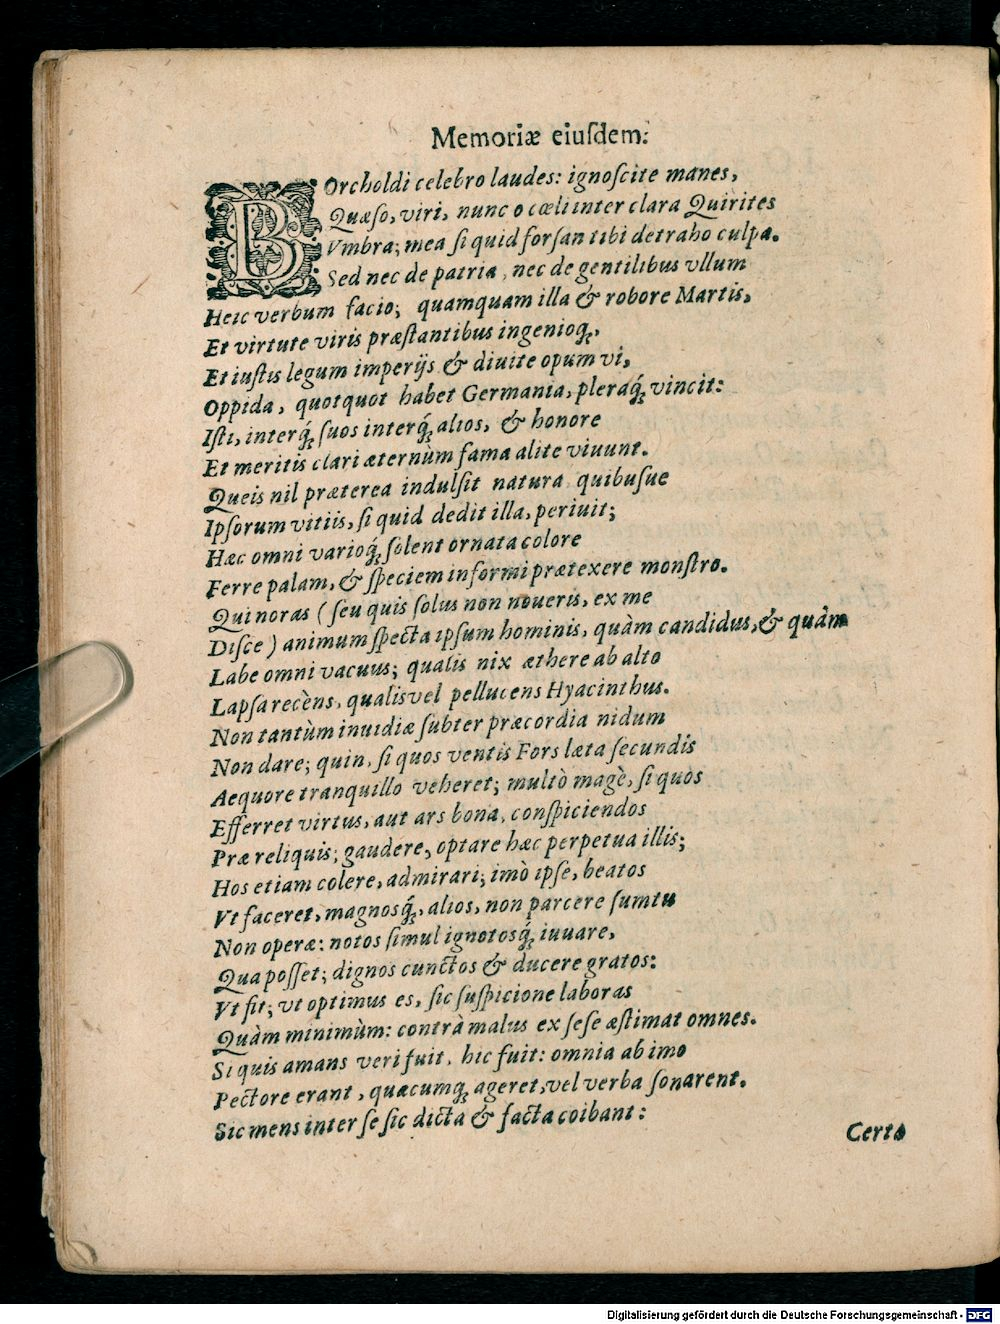 Memoriæ eiuſdem:
BOrcholdi celebro laudes: ignoſcite manes,
Quæſo, viri, nunc o cœli inter clara Quirites
Vmbra; mea ſi quid forſan tibi detraho culpa.
Sed nec de patria, nec de gentilibus vllum
Heic verbum facio; quamquam illa & robore Martis,
Et virtute viris præſtantibus ingenioq́;,
Et iuſtis legum imperijs & diuite opum vi,
Oppida, quotquot habet Germania, pleraq́; vincit:
Iſti, interq́; ſuos interq́; alios, & honore
Et meritis clari æternùm fama alite viuunt.
Queis nil præterea indulſit natura quibuſue
Ipſorum vitiis, ſi quid dedit illa, periuit;
Hæc omni varioq́; ſolent ornata colore
Ferre palam, & ſpeciem informi prætexere monſtro.
Qui noras (ſeu quis ſolus non noueris, ex me
Diſce) animum ſpecta ipſum hominis, quàm candidus, & quàm
Labe omni vacuus; qualis nix æthere ab alto
Lapſa recèns, qualis vel pellucens Hyacinthus.
Non tantùm inuidiæ ſubter præcordia nidum
Non dare; quin, ſi quos ventis Fors læta ſecundis
Aequore tranquillo veheret; multò magè, ſi quos
Efferret virtus, aut ars bona, conſpiciendos
Præ reliquis; gaudere, optare hæc perpetua illis;
Hos etiam colere, admirari; imò ipſe, beatos
Vt faceret, magnosq́;, alios, non parcere ſumtu
Non operæ: notos ſimul ignotosq́; iuuare,
Qua poſſet; dignos cunctos & ducere gratos:
Vt fit; vt optimus es, ſic ſuſpicione laboras
Quàm minimùm: contrà malus ex ſeſe æſtimat omnes.
Si quis amans veri fuit, hic fuit: omnia ab imo
Pectore erant, quæcumq; ageret, vel verba ſonarent.
Sic mens inter ſe ſic dicta & facta coibant:
Certo
Digitalisierung gefördert durch die Deutsche Forschungsgemeinschaft - DFG